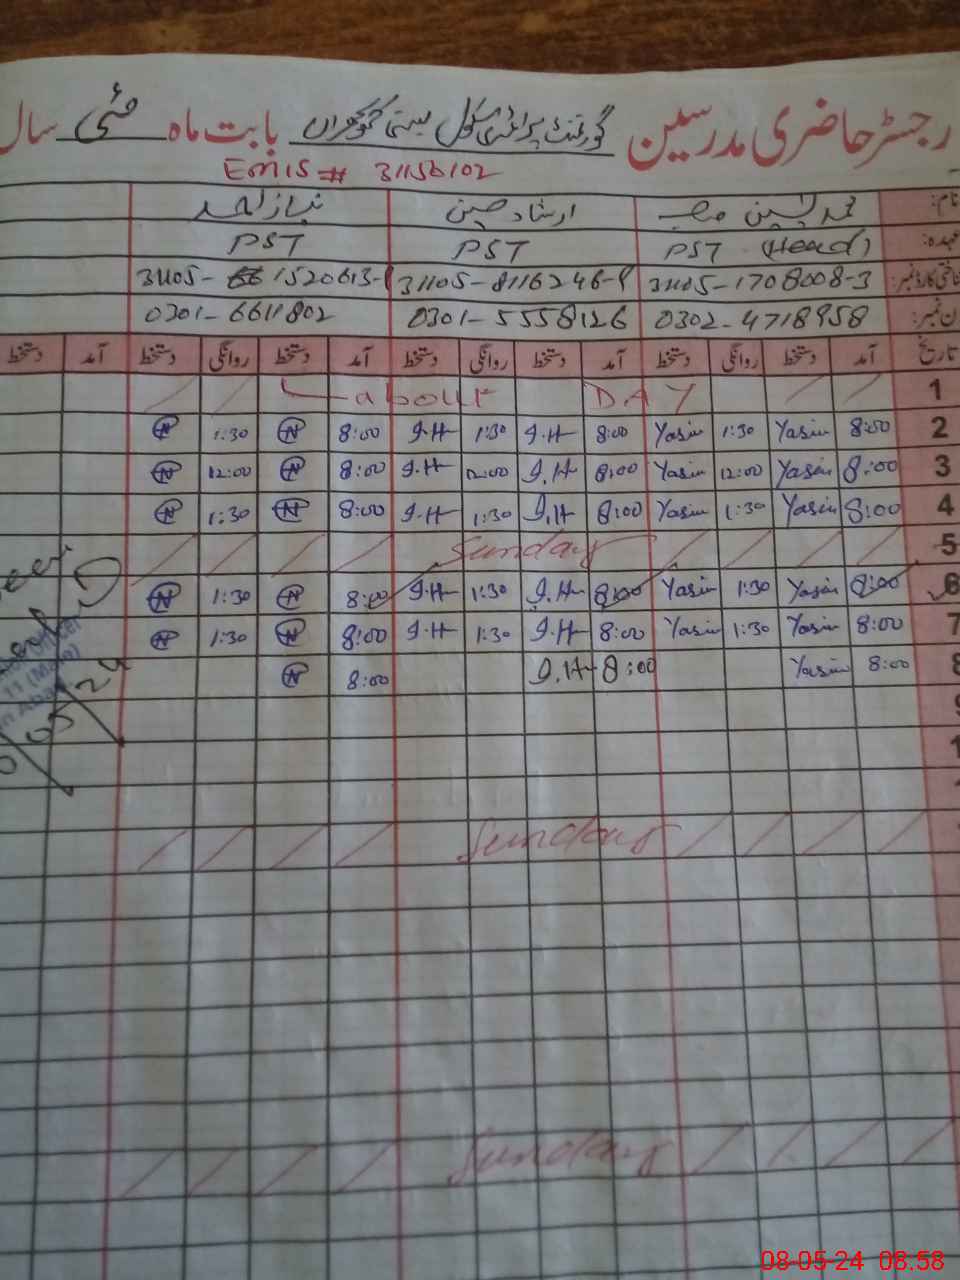 رجسٹر حاضری مدرسین گورنمنٹ پرائمری سکول بستی کھوکھراں بابت ماہ مئی سال
Emis # 31150102
نام: محمد یسین ارشاد حسین نیاز احمد
عہدہ: PST (Head) PST PST
شناختی کارڈ نمبر: 31105-1708008-3 31105-8116246-9 31105-1520613-
فون نمبر: 0302-4718958 0301-5558126 0301-6611802
تاریخ آمد دستخط روانگی دستخط آمد دستخط روانگی دستخط آمد دستخط روانگی دستخط آمد دستخط
1 Labour DAY
2 8:00 Yasin 1:30 Yasin 8:00 I.H 1:30 I.H 8:00 N 1:30 N
3 8:00 Yasin 12:00 Yasin 8:00 I.H 12:00 I.H 8:00 N 12:00 N
4 8:00 Yasin 1:30 Yasin 8:00 I.H 1:30 I.H 8:00 N 1:30 N
5 Sunday
6 8:00 Yasin 1:30 Yasin 8:00 I.H 1:30 I.H 8:00 N 1:30 N
7 8:00 Yasin 1:30 Yasin 8:00 I.H 1:30 I.H 8:00 N 1:30 N
8 8:00 Yasin 8:00 I.H 8:00 N
9
1
Sunday
Sunday
08-05-24 08.58